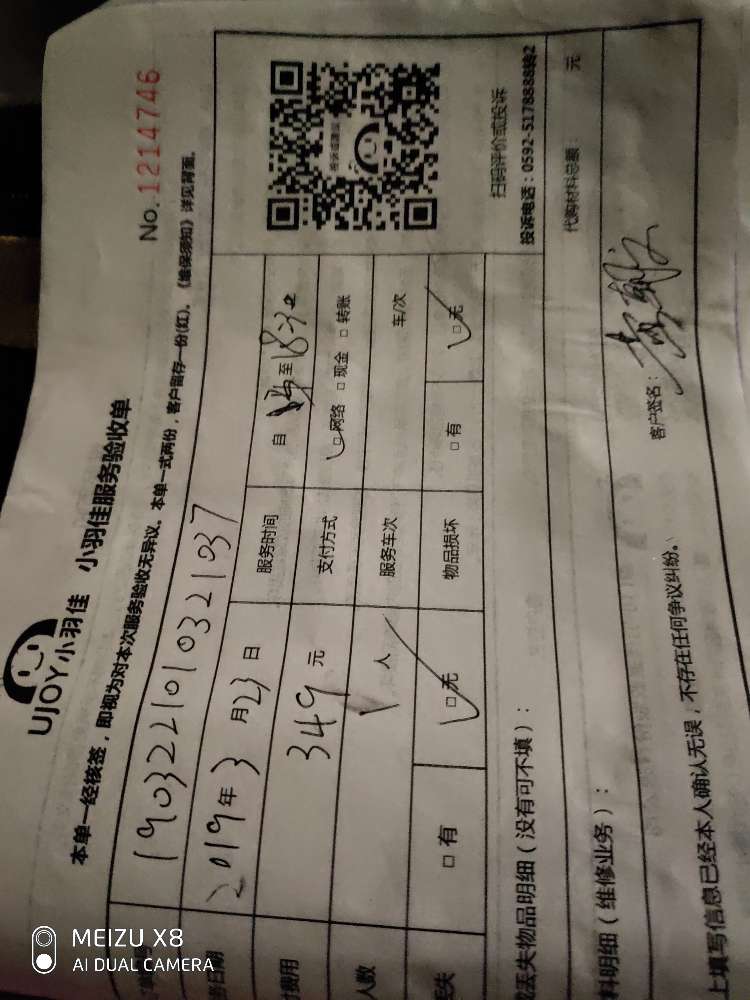 UJOY小羽佳 小羽佳服务验收单
No.1214746
本单一经核签，即视为对本次服务验收无异议。本单一式两份，客户留存一份(红)。《维保须知》详见背面。
190322101032 1037
日期 2019年3月23日
费用 349元 服务时间 自 至18:30
人数 1人 支付方式 □网络 □现金 □转账
服务车次 车/次
丢失 □有 □无 物品损坏 □有 □无
扫码评价或投诉
投诉电话：0592-5178888转2
丢失物品明细（没有可不填）：
料明细（维修业务）： 代购材料总额： 元
上填写信息已经本人确认无误，不存在任何争议纠纷。 客户签名：
MEIZU X8
AI DUAL CAMERA